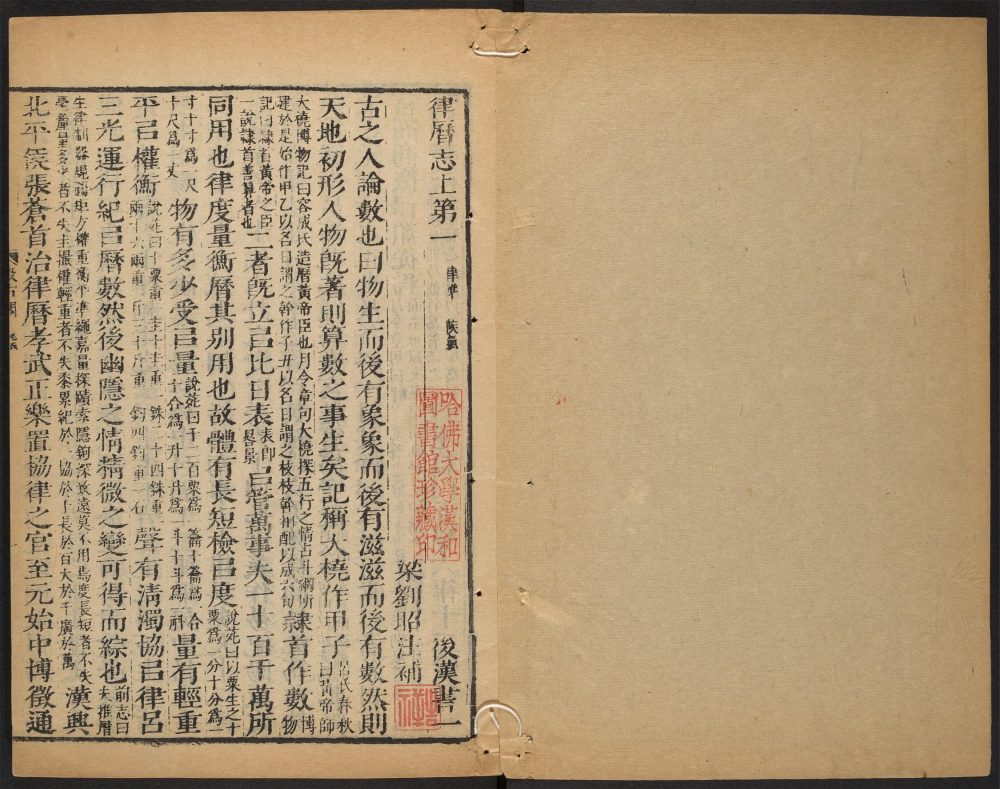 律曆志上第一 律準 候氣 後漢書一
梁劉昭注補
哈佛大學漢和
圖書館珍藏印
古之人論數也曰物生而後有象象而後有滋滋而後有數然則
天地初形人物旣著則算數之事生矣記稱大橈作甲子
呂氏春秋
曰黃帝師
大橈博物記曰容成氏造曆黃帝臣也月令章句大橈探五行之情占斗綱所
建於是始作甲乙以名日謂之幹作子丑以名日謂之枝枝幹相配以成六旬
隸首作數
博
物
記曰隸首黃帝之臣
一說隸首善算者也
二者旣立㠯比日表
表即
晷景
㠯管萬事夫一十百千萬所
同用也律度量衡曆其别用也故體有長短檢㠯度
說苑曰以粟生之十
粟爲一分十分爲一
寸十寸爲一尺
十尺爲一丈
物有多少受㠯量
說苑曰千二百粟爲一龠十龠爲一合
十合爲一升十升爲一斗十斗爲一斛
量有輕重
平㠯權衡
說苑曰十粟重一圭十圭重一銖二十四銖重一
兩十六兩重一斤三十斤重一鈞四鈞重一石
聲有淸濁協㠯律呂
三光運行紀㠯曆數然後幽隱之情精微之變可得而綜也
前志曰
夫推曆
生律制器規圓矩方權重衡平準繩嘉量探賾索隱鉤深致遠莫不用焉度長短者不失
毫釐量多少者不失圭撮權輕重者不失黍絫紀於一協於十長於百大於千廣於萬
漢興
北平侯張蒼首治律曆孝武正樂置協律之官至元始中博徵通